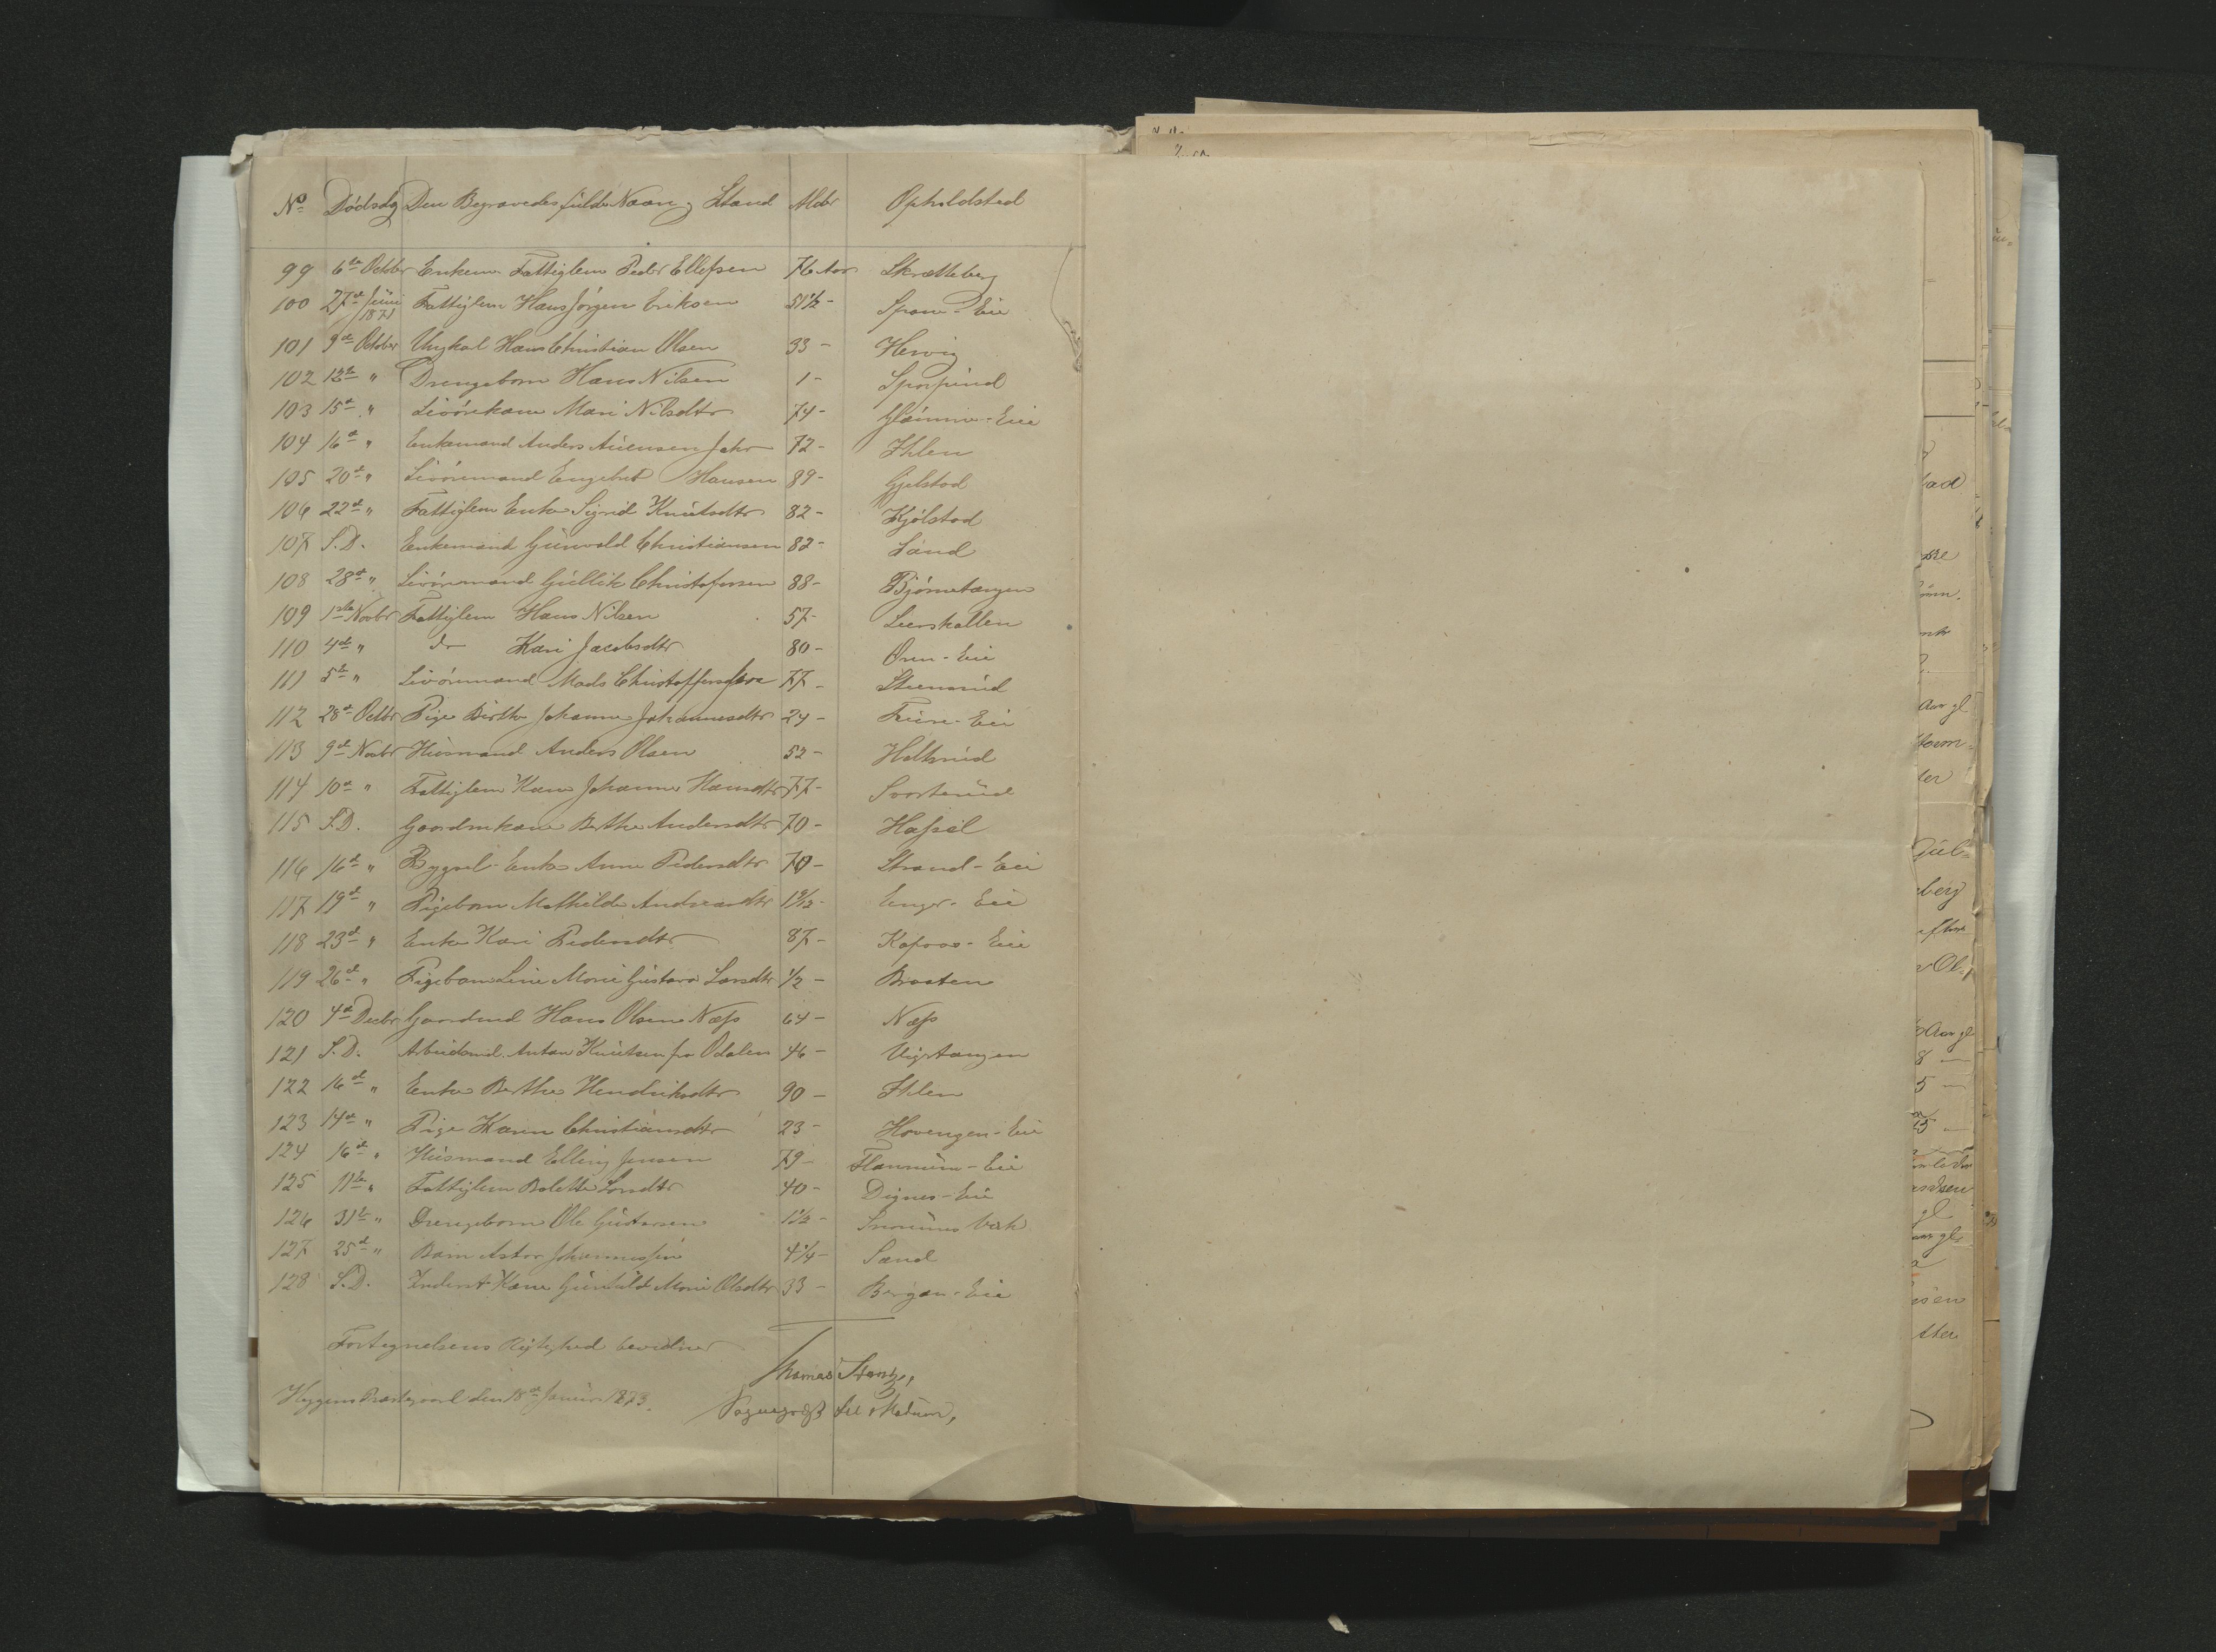 No Dødsdag Den Begravedes fulde Navn og Stand Alder Opholdsted
99 6te October Enkem. Fattiglem Peder Ellefsen 76 Aar Skrætteberg
100 27de Juni 1871 Fattiglem Hans Jørgen Eriksen 51 1/2 - Spone-Eie
101 9de October Ungkarl Hans Christian Olsen 33 - Hervig
102 12te " Drengebarn Hans Nilsen 1 -
103 15de " Livørekone Mari Nilsdtr 74 - -Eie
104 16de " Enkemand Anders Auensen 72 - Ihlen
105 20de " Livøremand Engebret Hansen 89 - Gjelstad
106 22de " Fattiglem Enke Sigrid Knutsdtr 82 - Kjølstad
107 S.D. Enkemand Gunvald Christiansen 82 - Land
108 28de " Livøremand Gullik Christofersen 88 - Bjørnetangen
109 1ste Novbr Fattiglem Hans Nilsen 57 - Leerskallen
110 4de " do Kari Jacobsdtr 80 - Øren-Eie
111 5te " Livøremand Mads Christoffersen 77 - Steensrud
112 28de Octbr Pige Birthe Johanne Johannesdtr 24 - -Eie
113 9de Novbr Husmand Anders Olsen 52 - Holtsrud
114 10de " Fattiglem Kone Johanne Hansdtr 77 - Svarterud
115 S.D. Gaardmkone Berthe Andersdtr 70 - Hassel
116 16de " Bygsel-Enke Anne Pedersdtr 70 - Strand-Eie
117 19de " Pigebarn Mathilde Andreasdtr Enger-Eie
118 23de " Enke Kari Pedersdtr 87 - Kopaas-Eie
119 26de " Pigebarn Line Marie Gustava Larsdtr 1/2 - Braaten
120 4de Decbr Gaardmd Hans Olsen Næss 64 - Næss
121 S.D. Arbeidsmd. Anton Knutsen fra Odalen 46 - Vigstangen
122 16de " Enke Berthe Hendriksdtr 90 - Ihlen
123 14de " Pige Karen Christiansdtr 23 - Hovengen-Eie
124 16de " Husmand Elling Jensen 79 - Flannum-Eie
125 11te " Fattiglem Bolette Larsdtr 40 - Dignes-Eie
126 31te " Drengebarn Ole Gustavsen 1 1/2 - Snarums Værk
127 25de " Barn Astor 4 1/4 - Sand
128 S.D. Inderst Kone Gunhild Marie Olsdtr 33 - Bergan-Eie
Fortegnelsens Rigtighed bevidner
Thomas
Heggens Præstegaard den 18de Januar 1873. Sognepræst til Modum,